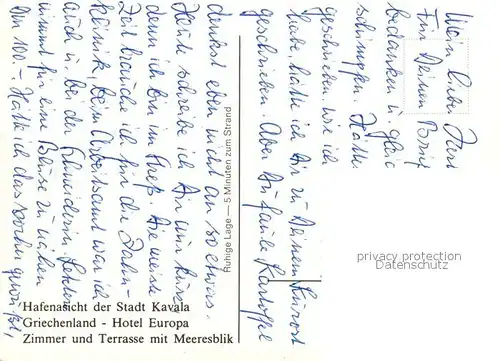 Mein lieber
für Deinen Brief
bedanken u. gleich
schimpfen. Hätte
geschrieben wie ich
habe, hätte ich Dir zu Deinem Kurort
geschrieben. Aber Du faule Kartoffel
denkst eben nicht an so etwas.
Heute schreibe ich Dir nur kurz
denn ich bin im Die meiste
Zeit brauche ich für die Zahn-
klinik, beim Arbeitsamt war ich
auch u. bei der Schneiderin.
nimmt für eine Bluse zu nähen
DM 100.- Hätte ich das vorher gewußt,
Ruhige Lage — 5 Minuten zum Strand
Hafenasicht der Stadt Kavala
Griechenland - Hotel Europa
Zimmer und Terrasse mit Meeresblik
privacy protection
Datenschutz